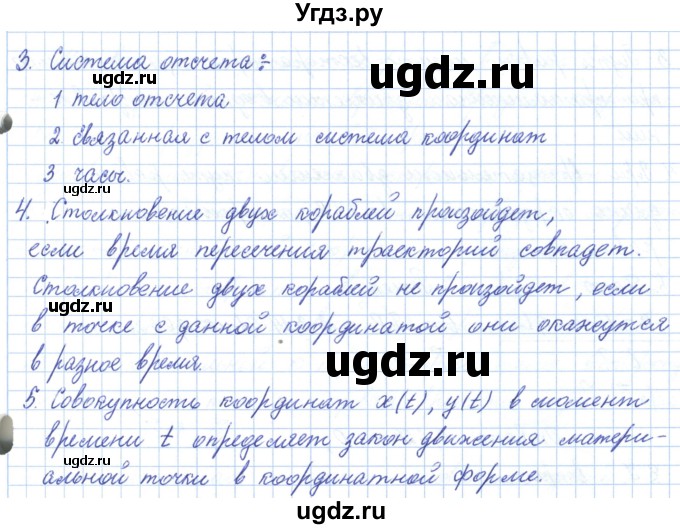 Угдз.ру
3. Система отсчета:
ugdz.ru
1 тело отсчета
2 связанная с телом система координат
3 часы.
ugdz.ru
ugdz.ru
4. Столкновение двух кораблей произойдет,
если время пересечения траекторий совпадет.
Столкновение двух кораблей не произойдет, если
ugdz.ru
в точке с данной координатой они окажутся
в разное время.
ugdz.ru
5. Совокупность координат x(t), y(t) в момент
времени t определяет закон движения матери-
ugdz.ru
альной точки в координатной форме.
ugdz.ru